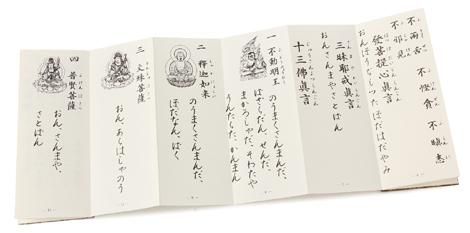 不両舌 不慳貪 不瞋恚
不邪見
發菩提心真言
おんぼうぢしつたぼだはだやみ
三昧耶戒真言
おんさんまやさとばん
十三佛真言
一 不動明王
のうまくさんまんだ、
ばざらだん、せんだ、
まかろしやだ、そわたや
うんたらた、かんまん
二 釋迦如来
のうまくさんまんだ、
ぼだなん、ばく
三 文殊菩薩
おん、あらはしやのう
四 普賢菩薩
おん、さんまや、
さとばん